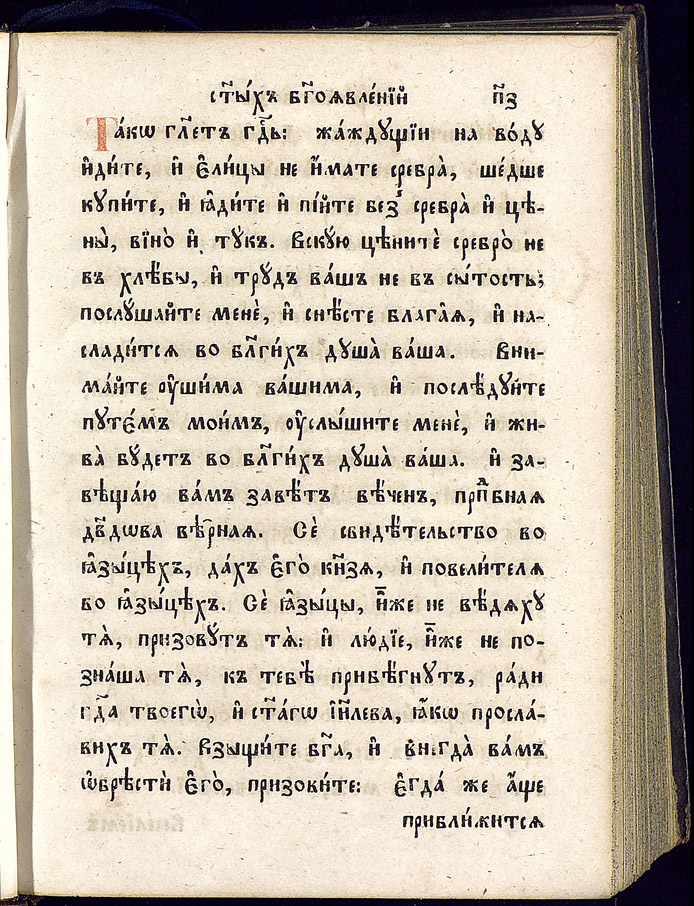 ст҃ы́хъ бг҃оявле́нїй п҃з
Та́кѡ гл҃етъ гдⷭ҇ь: жа́ждꙋщїи на во́дꙋ
и҆ди́те, и҆ є҆ли́цы не и҆́мате сребра̀, ше́дше
кꙋпи́те, и҆ ꙗ҆ди́те и҆ пі́йте без̾ сребра̀ и҆ цѣ-
ны̀, вїно̀ и҆ тꙋ́къ. Вскꙋ́ю цѣнитѐ сребро̀ не
въ хлѣ́бы, и҆ трꙋ́дъ ва́шъ не въ сы́тость;
послꙋ́шайте менѐ, и҆ снѣ́сте блага́ѧ, и҆ на-
слади́тсѧ во бл҃ги́хъ дꙋша̀ ва́ша. Вни-
ма́йте ᲂу҆ши́ма ва́шима, и҆ послѣ́дꙋйте
пꙋте́мъ мои́мъ, ᲂу҆слы́шите менѐ, и҆ жи-
ва̀ бꙋ́детъ во бл҃ги́хъ дꙋша̀ ва́ша. и҆ за-
вѣща́ю ва́мъ завѣ́тъ вѣ́ченъ, прпⷣбнаѧ
дв҃дѡва вѣ́рнаѧ. Сѐ свидѣ́тельство во
ꙗ҆зы́цѣхъ, да́хъ є҆го̀ кн҃зѧ, и҆ повели́телѧ
во ꙗ҆зы́цѣхъ. Сѐ ꙗ҆зы́цы, и҆̀же не вѣ́дѧхꙋ
тѧ̀, призовꙋ́тъ тѧ̀: и҆ лю́дїе, и҆̀же не по-
зна́ша тѧ̀, къ тебѣ̀ прибѣ́гнꙋтъ, ра́ди
гдⷭ҇а твоегѡ̀, и҆ ст҃а́гѡ і҆и҃лева, ꙗ҆́кѡ просла́-
вихъ тѧ̀. Взыщи́те бг҃а, и҆ внегда̀ ва́мъ
ѡ҆брѣстѝ є҆го̀, призови́те: є҆гда́ же а҆́ще
прибли́житсѧ